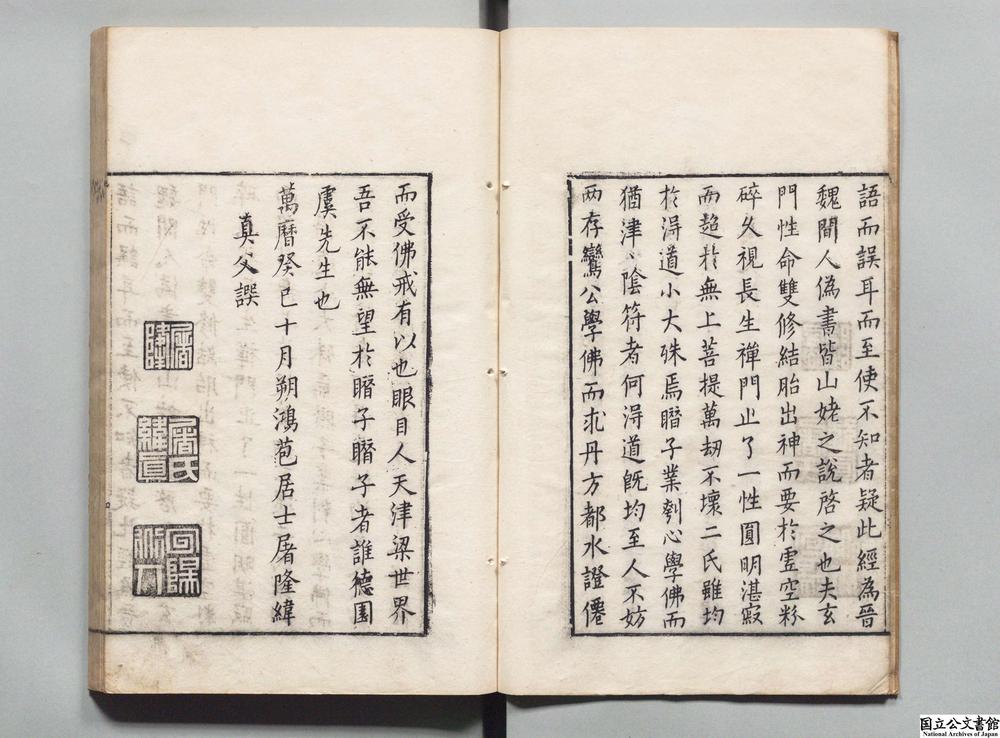 語而誤耳而至使不知者疑此經為晉
魏間人偽書皆山姥之說啓之也夫玄
門性命雙修結胎出神而要於虗空粉
碎久視長生禪門止了一性圓明湛寂
而超於無上菩提萬劫不壞二氏雖均
於淂道小大殊焉瞪子業刳心學佛而
猶津〻陰符者何淂道既均至人不妨
两存鸞公學佛而求丹方都水證僊
而受佛戒有以也眼目人天津梁世界
吾不能無望於瞪子瞪子者誰德園
虞先生也
萬曆癸巳十月朔鴻苞居士屠隆緯
真父譔
屠隆
屠氏緯真
國立公文書館
National Archives of Japan